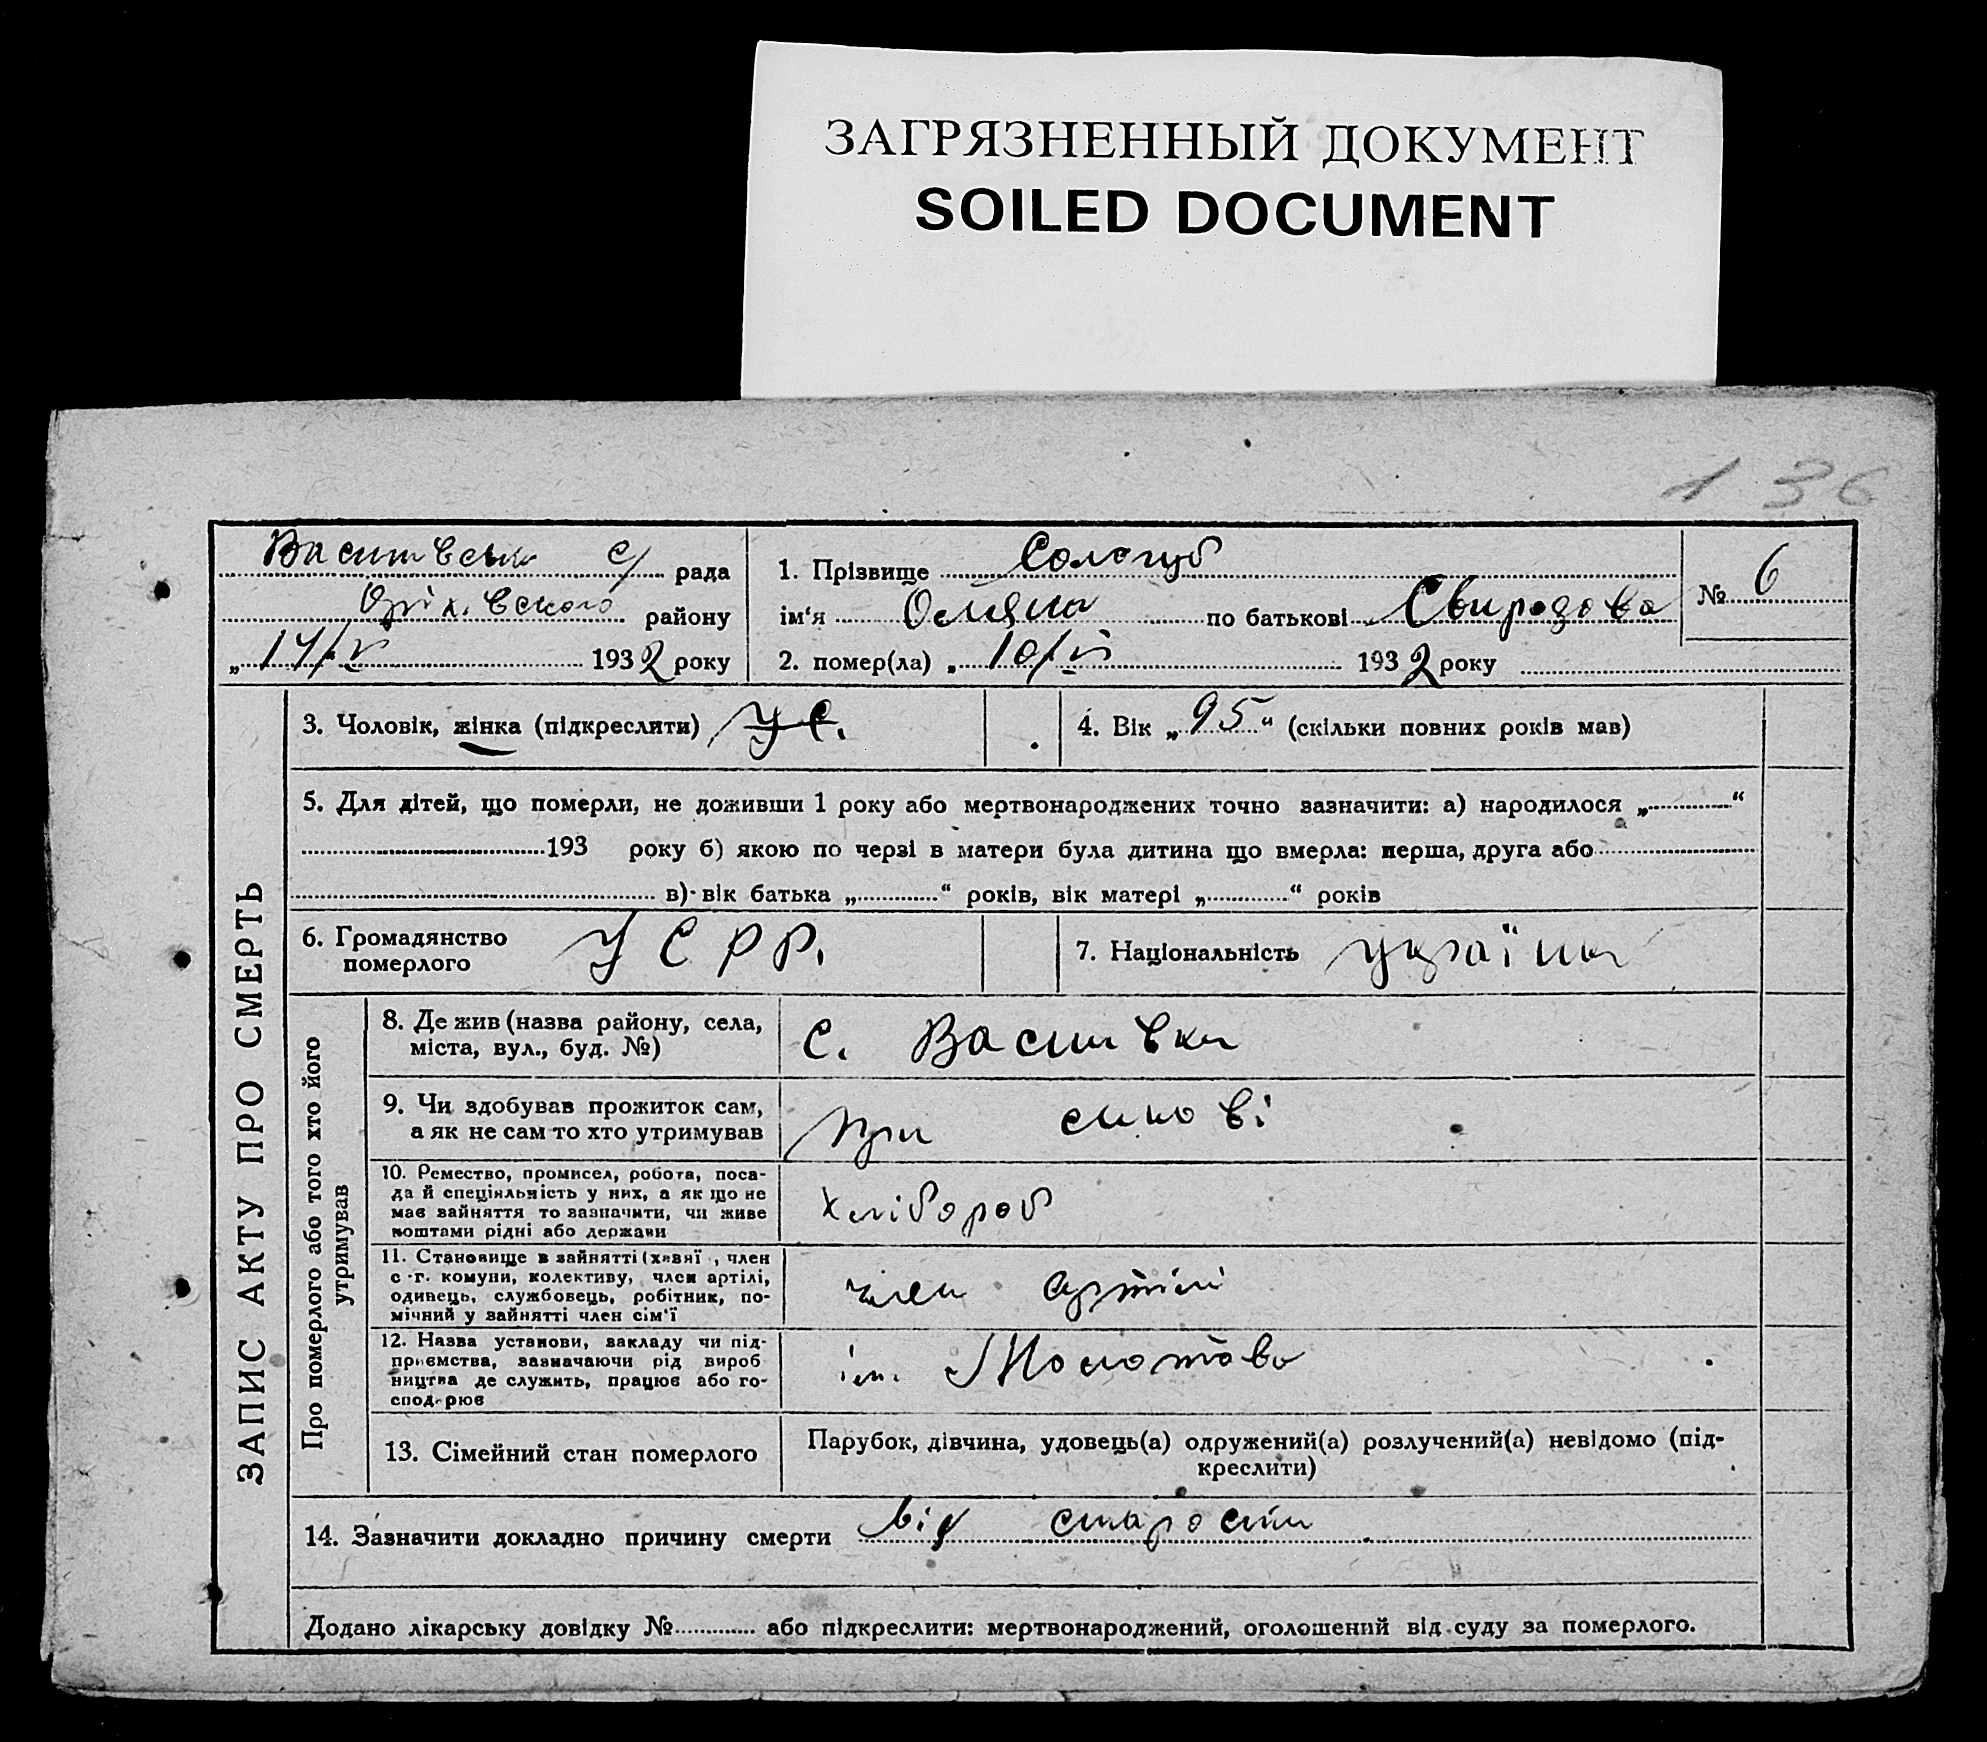 ЗАГРЯЗНЕННЫЙ ДОКУМЕНТ
SOILED DOCUMENT
136
Василівська с/ рада
Оріхівського району
„ 14/V 1932 року
1. Прізвище Сологуб
ім‘я по батькові Свиридова
№ 6
2. помер(ла) „ 10/V 1932 року
ЗАПИС АКТУ ПРО СМЕРТЬ
3. Чоловік, жінка (підкреслити) УС.
4. Вік „ 95 “ (скільки повних років мав)
5. Для дітей, що померли, не доживши 1 року або мертвонароджених точно зазначити: а) народилося „ “
193 року б) якою по черзі в матери була дитина що вмерла: перша, друга або
в) вік батька „ “ років, вік матері „ “ років
6. Громадянство
померлого
УСРР.
7. Національність україн
Про померлого або того хто його
утримував
8. Де жив (назва району, села,
міста, вул., буд. №)
С. Василівка
9. Чи здобував прожиток сам,
а як не сам то хто утримував
при синові
10. Ремество, промисел, робота, поса-
да й спеціяльність у них, а як що не
має зайняття то зазначити, чи живе
коштами рідні або держави
хлібороб
11. Становище в зайнятті (хазяї , член
с -г. комуни, колективу, член артілі,
одинець, службовець, робітник, по-
мічний у зайнятті член сім‘ї
член артілі
12. Назва установи, закладу чи під-
приємства, зазначаючи рід вироб
ництва де служить, працює або го-
сподрює
ім. Молотова
13. Сімейний стан померлого
Парубок, дівчина, удовець(а) одружений(а) розлучений(а) невідомо (під-
креслити)
14. Зазначити докладно причину смерти від старости
Додано лікарську довідку № або підкреслити: мертвонароджений, оголошений від суду за померлого.